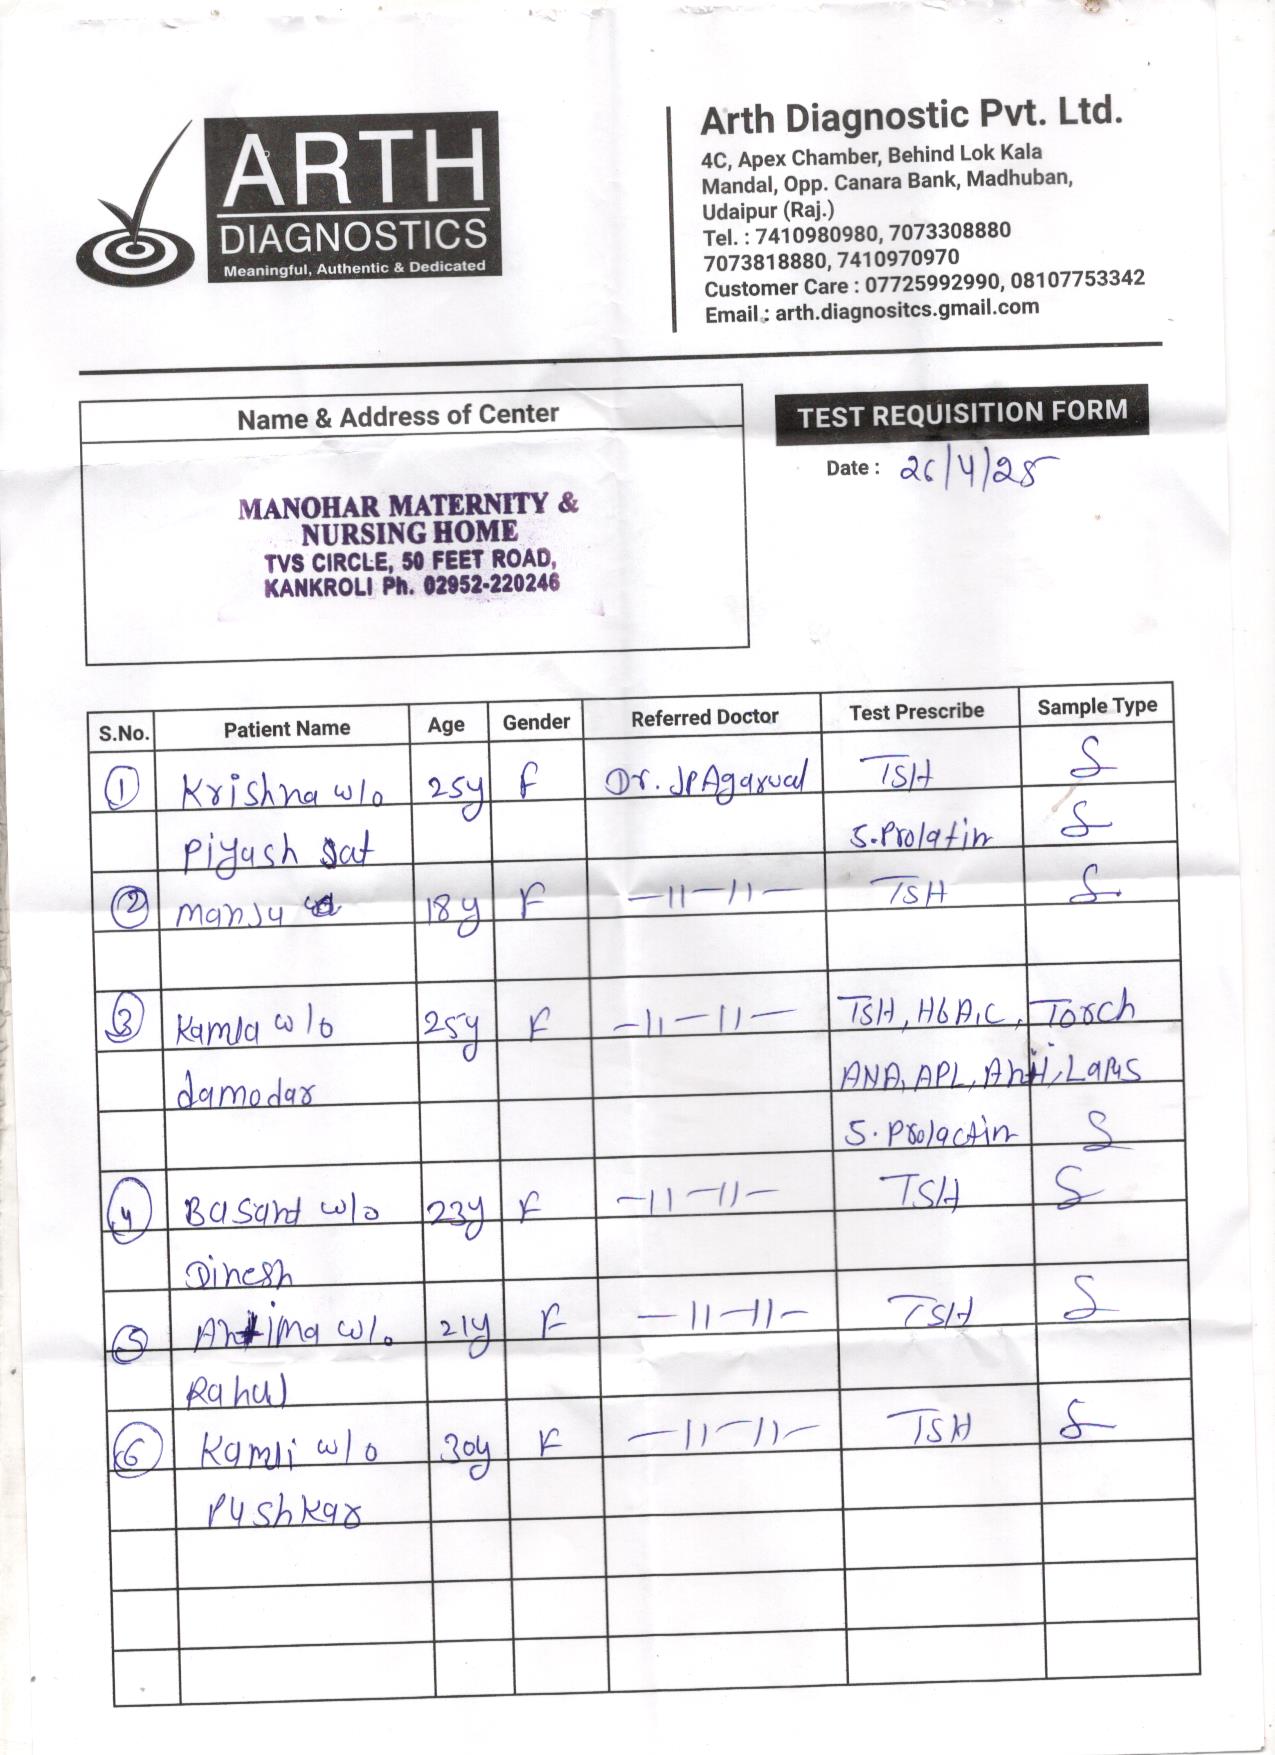 ARTH
DIAGNOSTICS
Meaningful, Authentic & Dedicated
Arth Diagnostic Pvt. Ltd.
4C, Apex Chamber, Behind Lok Kala
Mandal, Opp. Canara Bank, Madhuban,
Udaipur (Raj.)
Tel. : 7410980980, 7073308880
7073818880, 7410970970
Customer Care : 07725992990, 08107753342
Email : arth.diagnositcs.gmail.com
Name & Address of Center
TEST REQUISITION FORM
Date : 26/4/25
MANOHAR MATERNITY &
NURSING HOME
TVS CIRCLE, 50 FEET ROAD,
KANKROLI Ph. 02952-220246
S.No. Patient Name Age Gender Referred Doctor Test Prescribe Sample Type
1 Krishna w/o 25y F Dr. JP Agarwal TSH S
Piyush S.Prolatin S
2 Manju 18y F -11-11- TSH S
3 Kamla w/o 25y F -11-11- TSH, HbA1C, Torch
damodar ANA, APL, Anti,
S. Prolactin S
4 Basant w/o 23y F -11-11- TSH S
Dinesh
5 Antima w/o 21y F -11-11- TSH S
Rahul
6 Kamli w/o 30y F -11-11- TSH S
Pushkar